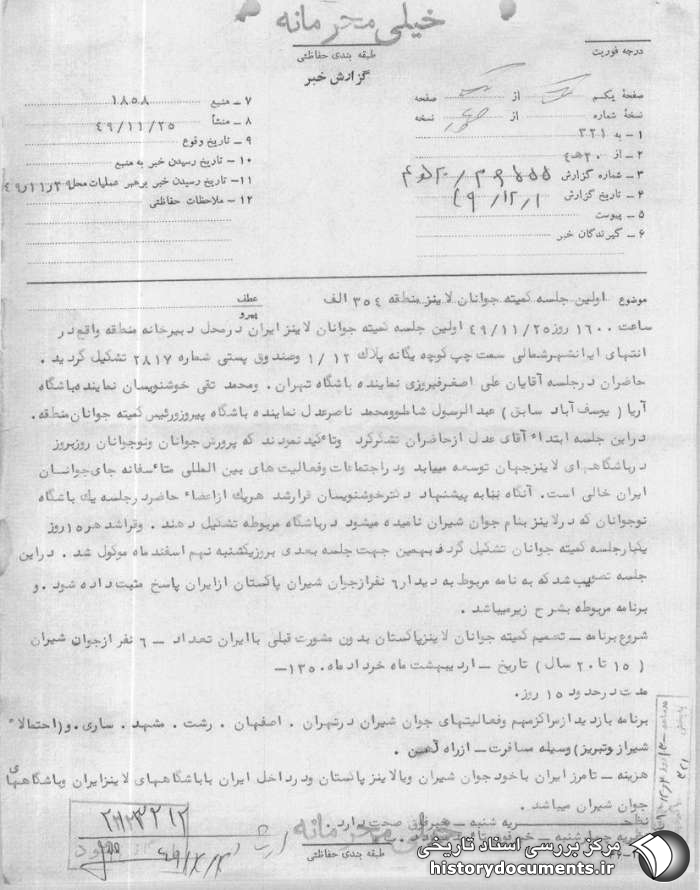 خیلی محرمانه
درجه فوریت
طبقه بندی حفاظتی
گزارش خبر
صفحه یکم از صفحه
نسخه شماره از نسخه
۱ – به ۳۲۱
۲ – از ۲۰ هـ ۴
۳ – شماره گزارش
۴ – تاریخ گزارش ۴۹/۱۲/۱
۵ – پیوست
۶ – گیرندگان خبر
۷ – منبع ۱۸۵۸
۸ – منشأ ۴۹/۱۱/۲۵
۹ – تاریخ وقوع
۱۰ – تاریخ رسیدن خبر به منبع
۱۱ – تاریخ رسیدن خبر برهبر عملیات محل ۴۹/۱۱/۲۹
۱۲ – ملاحظات حفاظتی
موضوع اولین جلسه کمیته جوانان لاینز منطقه ۳۵۴ الف
عطف
پیرو
ساعت ۱۶۰۰ روز ۴۹/۱۱/۲۵ اولین جلسه کمیته جوانان لاینز ایران درمحل دبیرخانه منطقه واقع در
انتهای ایرانشهرشمالی سمت چپ کوچه یگانه پلاك ۱۲ /۱ وصندوق پستی شماره ۲۸۱۷ تشکیل گردید .
حاضران درجلسه آقایان علی اصغرفیروزی نماینده باشگاه تهران . ومحمد تقی خوشنویسان نماینده باشگاه
آریا ( یوسف آباد سابق ) عبدالرسول شاطر ومحمد ناصرعدل نماینده باشگاه پیروز ورئیس کمیته جوانان منطقه .
دراین جلسه ابتداء آقای عدل ازحاضران تشکرکرد وتأکید نمودند که پرورش جوانان ونوجوانان روزبروز
درباشگاههای لاینزجهان توسعه مییابد ودراجتماعات وفعالیت های بین المللی متأسفانه جای جوانان
ایران خالی است . آنگاه بنابه پیشنهاد دکترخوشنویسان قرارشد هریك ازاعضاء حاضر درجلسه یك باشگاه
نوجوانان که درلاینز بنام جوان شیران نامیده میشود درباشگاه مربوطه تشکیل دهند . وقراشد هر ۱۵ روز
یکبار جلسه کمیته جوانان تشکیل گردد بهمین جهت جلسه بعدی بروز یکشنبه نهم اسفند ماه موکول شد . دراین
جلسه تصویب شد که به نامه مربوط به دیدار ۶ نفر ازجوان شیران پاکستان ازایران پاسخ مثبت داده شود . و
برنامه مربوطه بشرح زیرمیباشد .
شروع برنامه – تصمیم کمیته جوانان لاینز پاکستان بدون مشورت قبلی با ایران تعداد – ۶ نفر ازجوان شیران
( ۱۵ تا ۲۰ سال ) تاریخ – اردیبهشت ماه خرداد ماه . ۱۳۵۰ –
مدت درحدود ۱۵ روز .
برنامه بازدید ازمراکزمهم وفعالیتهای جوان شیران درتهران . اصفهان . رشت . مشهد . ساری . و(احتمالاً
شیراز وتبریز) وسیله مسافرت – ازراه آهن .
هزینه – تامرز ایران باخود جوان شیران ویا لاینز پاکستان ودرداخل ایران باباشگاههای لاینزایران وباشگاههای
جوان شیران میباشد .
شنبه – خبرفوق صحت دارد .
خیلی محرمانه
طبقه بندی حفاظتی
مرکز بررسی اسناد تاریخی
historydocuments.ir